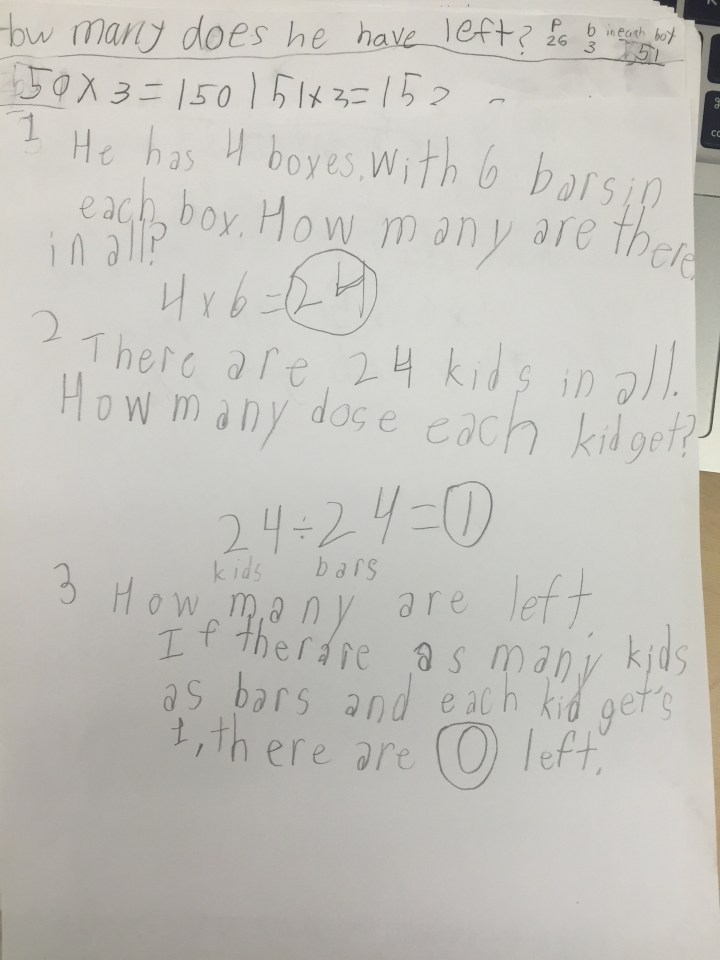 How many does he have left? P 26 b 3 in each box 51
50 x 3 = 150 | 51 x 3 = 152
1 He has 4 boxes. With 6 bars in
each box. How many are there
in all?
4 x 6 = 24
2 There are 24 kids in all.
How many dose each kid get?
24 ÷ 24 = 1
kids bars
3 How many are left
If therare as many kids
as bars and each kid get's
1, there are 0 left.